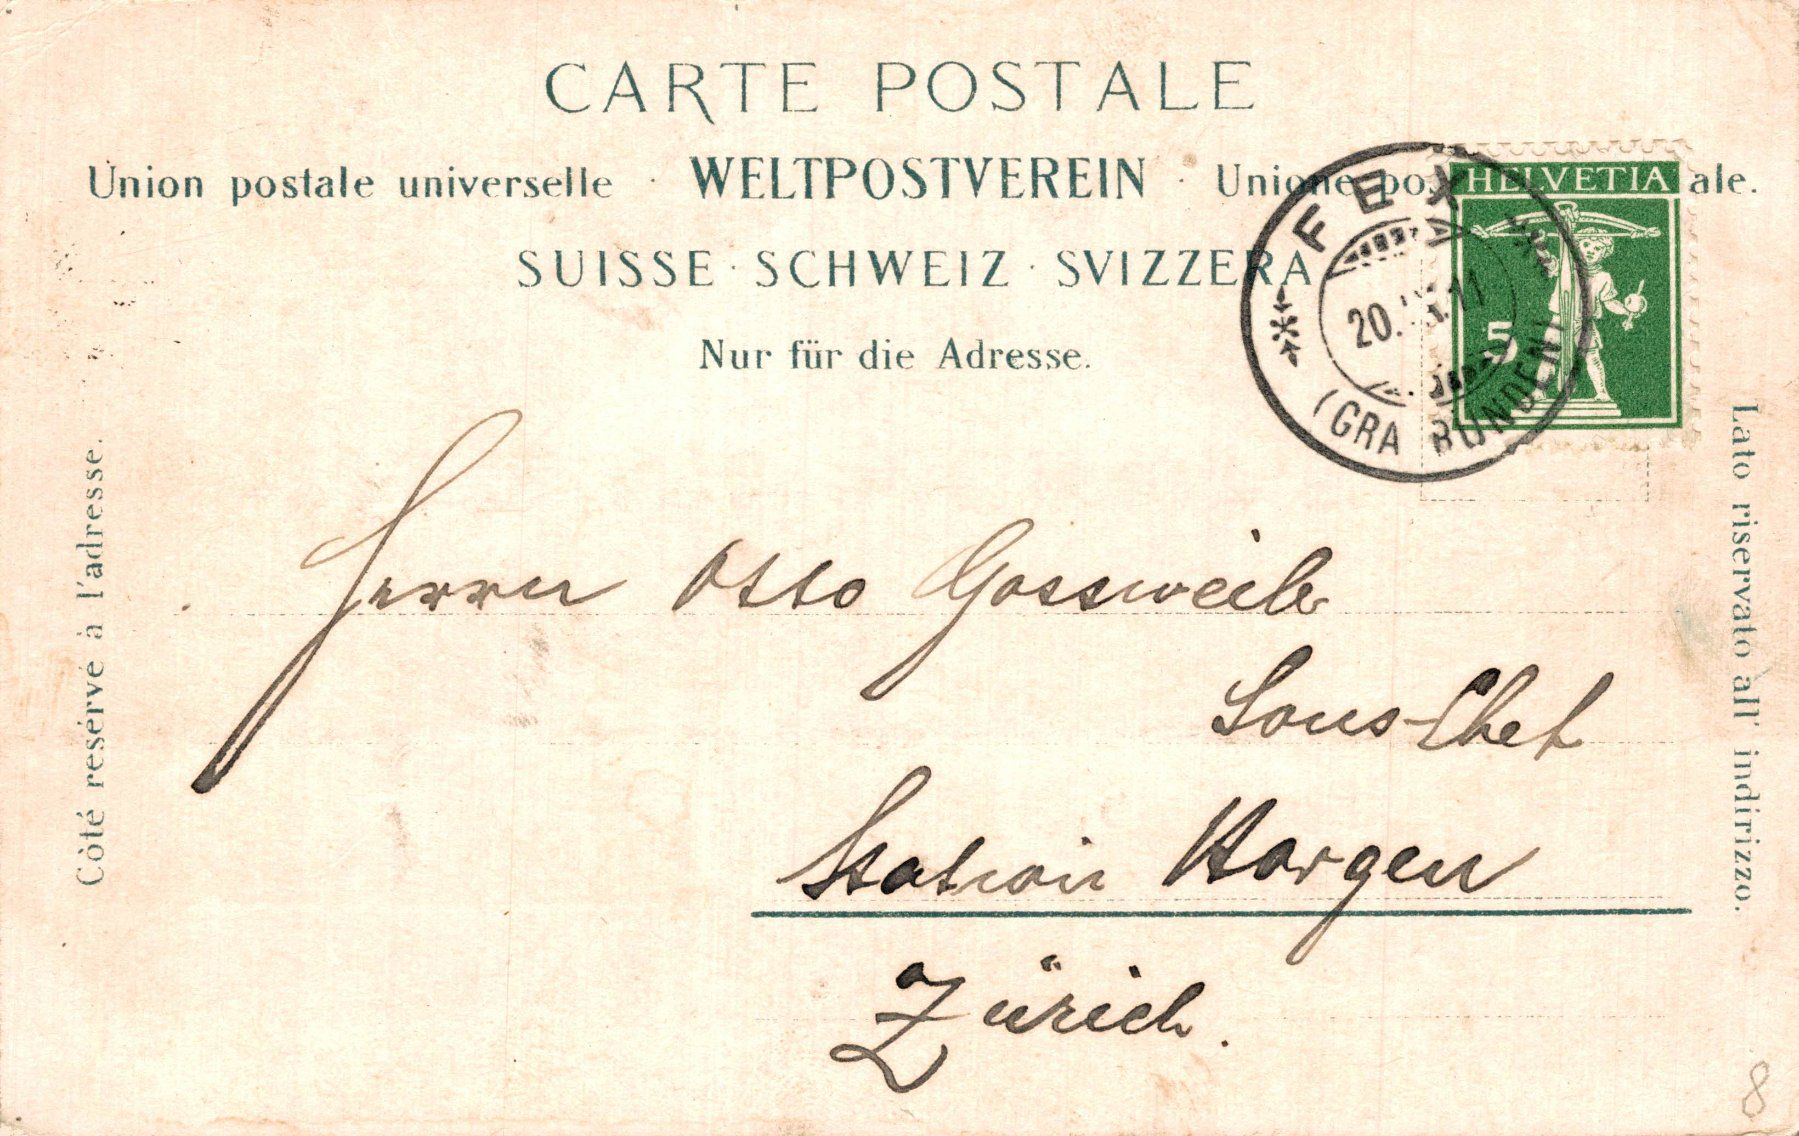 CARTE POSTALE
Union postale universelle · WELTPOSTVEREIN · Unione pos ale.
SUISSE · SCHWEIZ · SVIZZERA
Nur für die Adresse.
HELVETIA
5
FEX
20. 11
(GRAUBÜNDEN)
Côté resérvé à l'adresse.
Lato riservato all' indirizzo.
Herrn Otto Gossweiler
Sous-Chef
Station Horgen
Zürich.
8